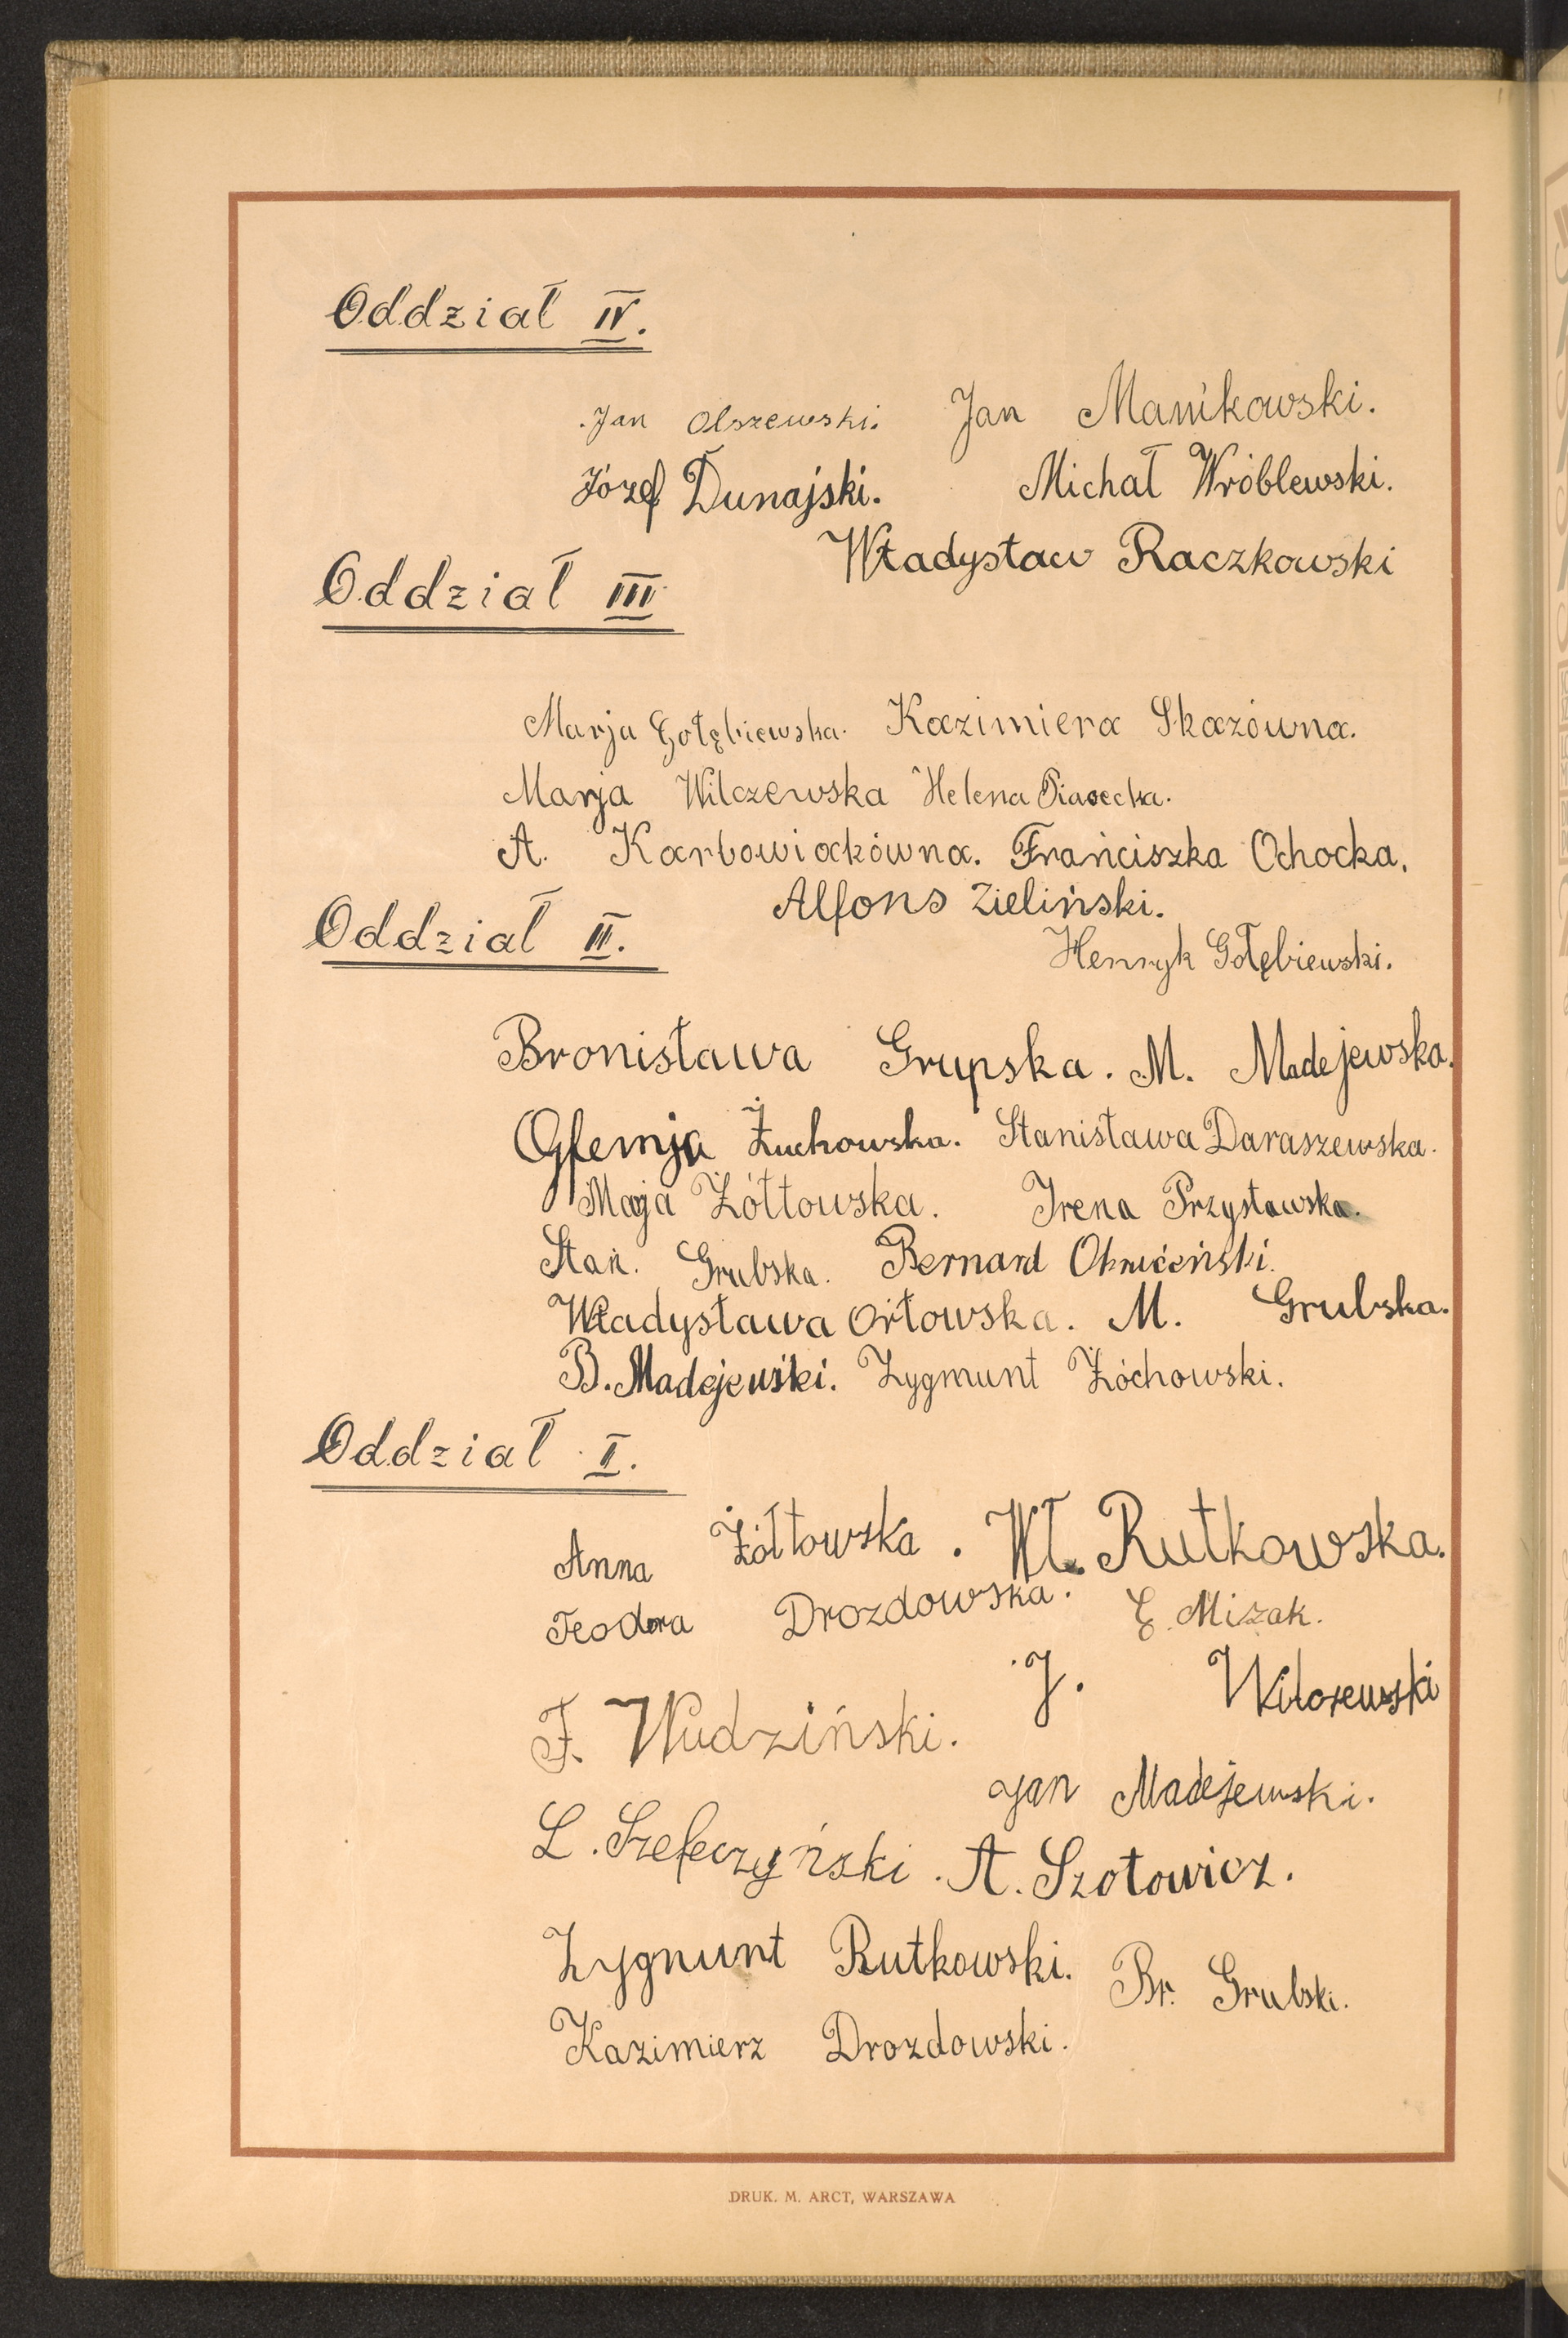 Oddział IV.
Jan Olszewski. Jan Manikowski.
Józef Dunajski. Michał Wróblewski.
Władysław Raczkowski
Oddział III
Marja Gołębiewska. Kazimiera Skazówna.
Marja Wilczewska Helena Piasecka.
A. Karbowiackówna. Frańciszka Ochocka.
Alfons Zieliński.
Oddział II.
Henryk Gołębiewski.
Bronisława Grupska. M. Madejewska.
Żuchowska. Stanisława Daraszewska.
Maja Żółtowska. Irena Przystawska.
Stań. Grubska. Bernard
Władysława Orłowska. M. Grubska.
B. Madejewski. Zygmunt Żóchowski.
Oddział I.
Anna Żółtowska. Wł. Rutkowska.
Teodora Drozdowska. E. Mizak.
J. Wilczewski
F. Wudziński.
Jan Madejewski.
L. A. Szotowicz.
Zygmunt Rutkowski. Br. Grubski.
Kazimierz Drozdowski.
DRUK. M. ARCT, WARSZAWA